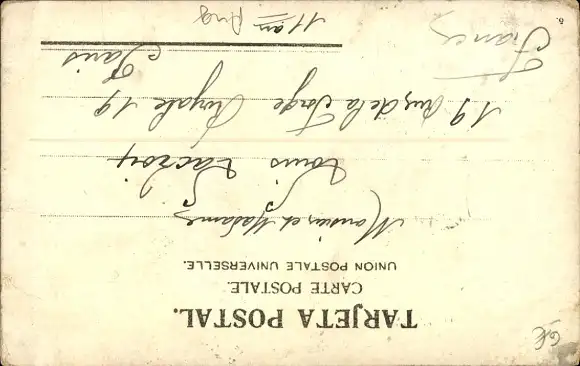 TARJETA POSTAL.
CARTE POSTALE.
UNION POSTALE UNIVERSELLE.
Monsieur et Madame
Louis Lacroix
19 Rue de la Forge Royale 19
Paris
France
11 am